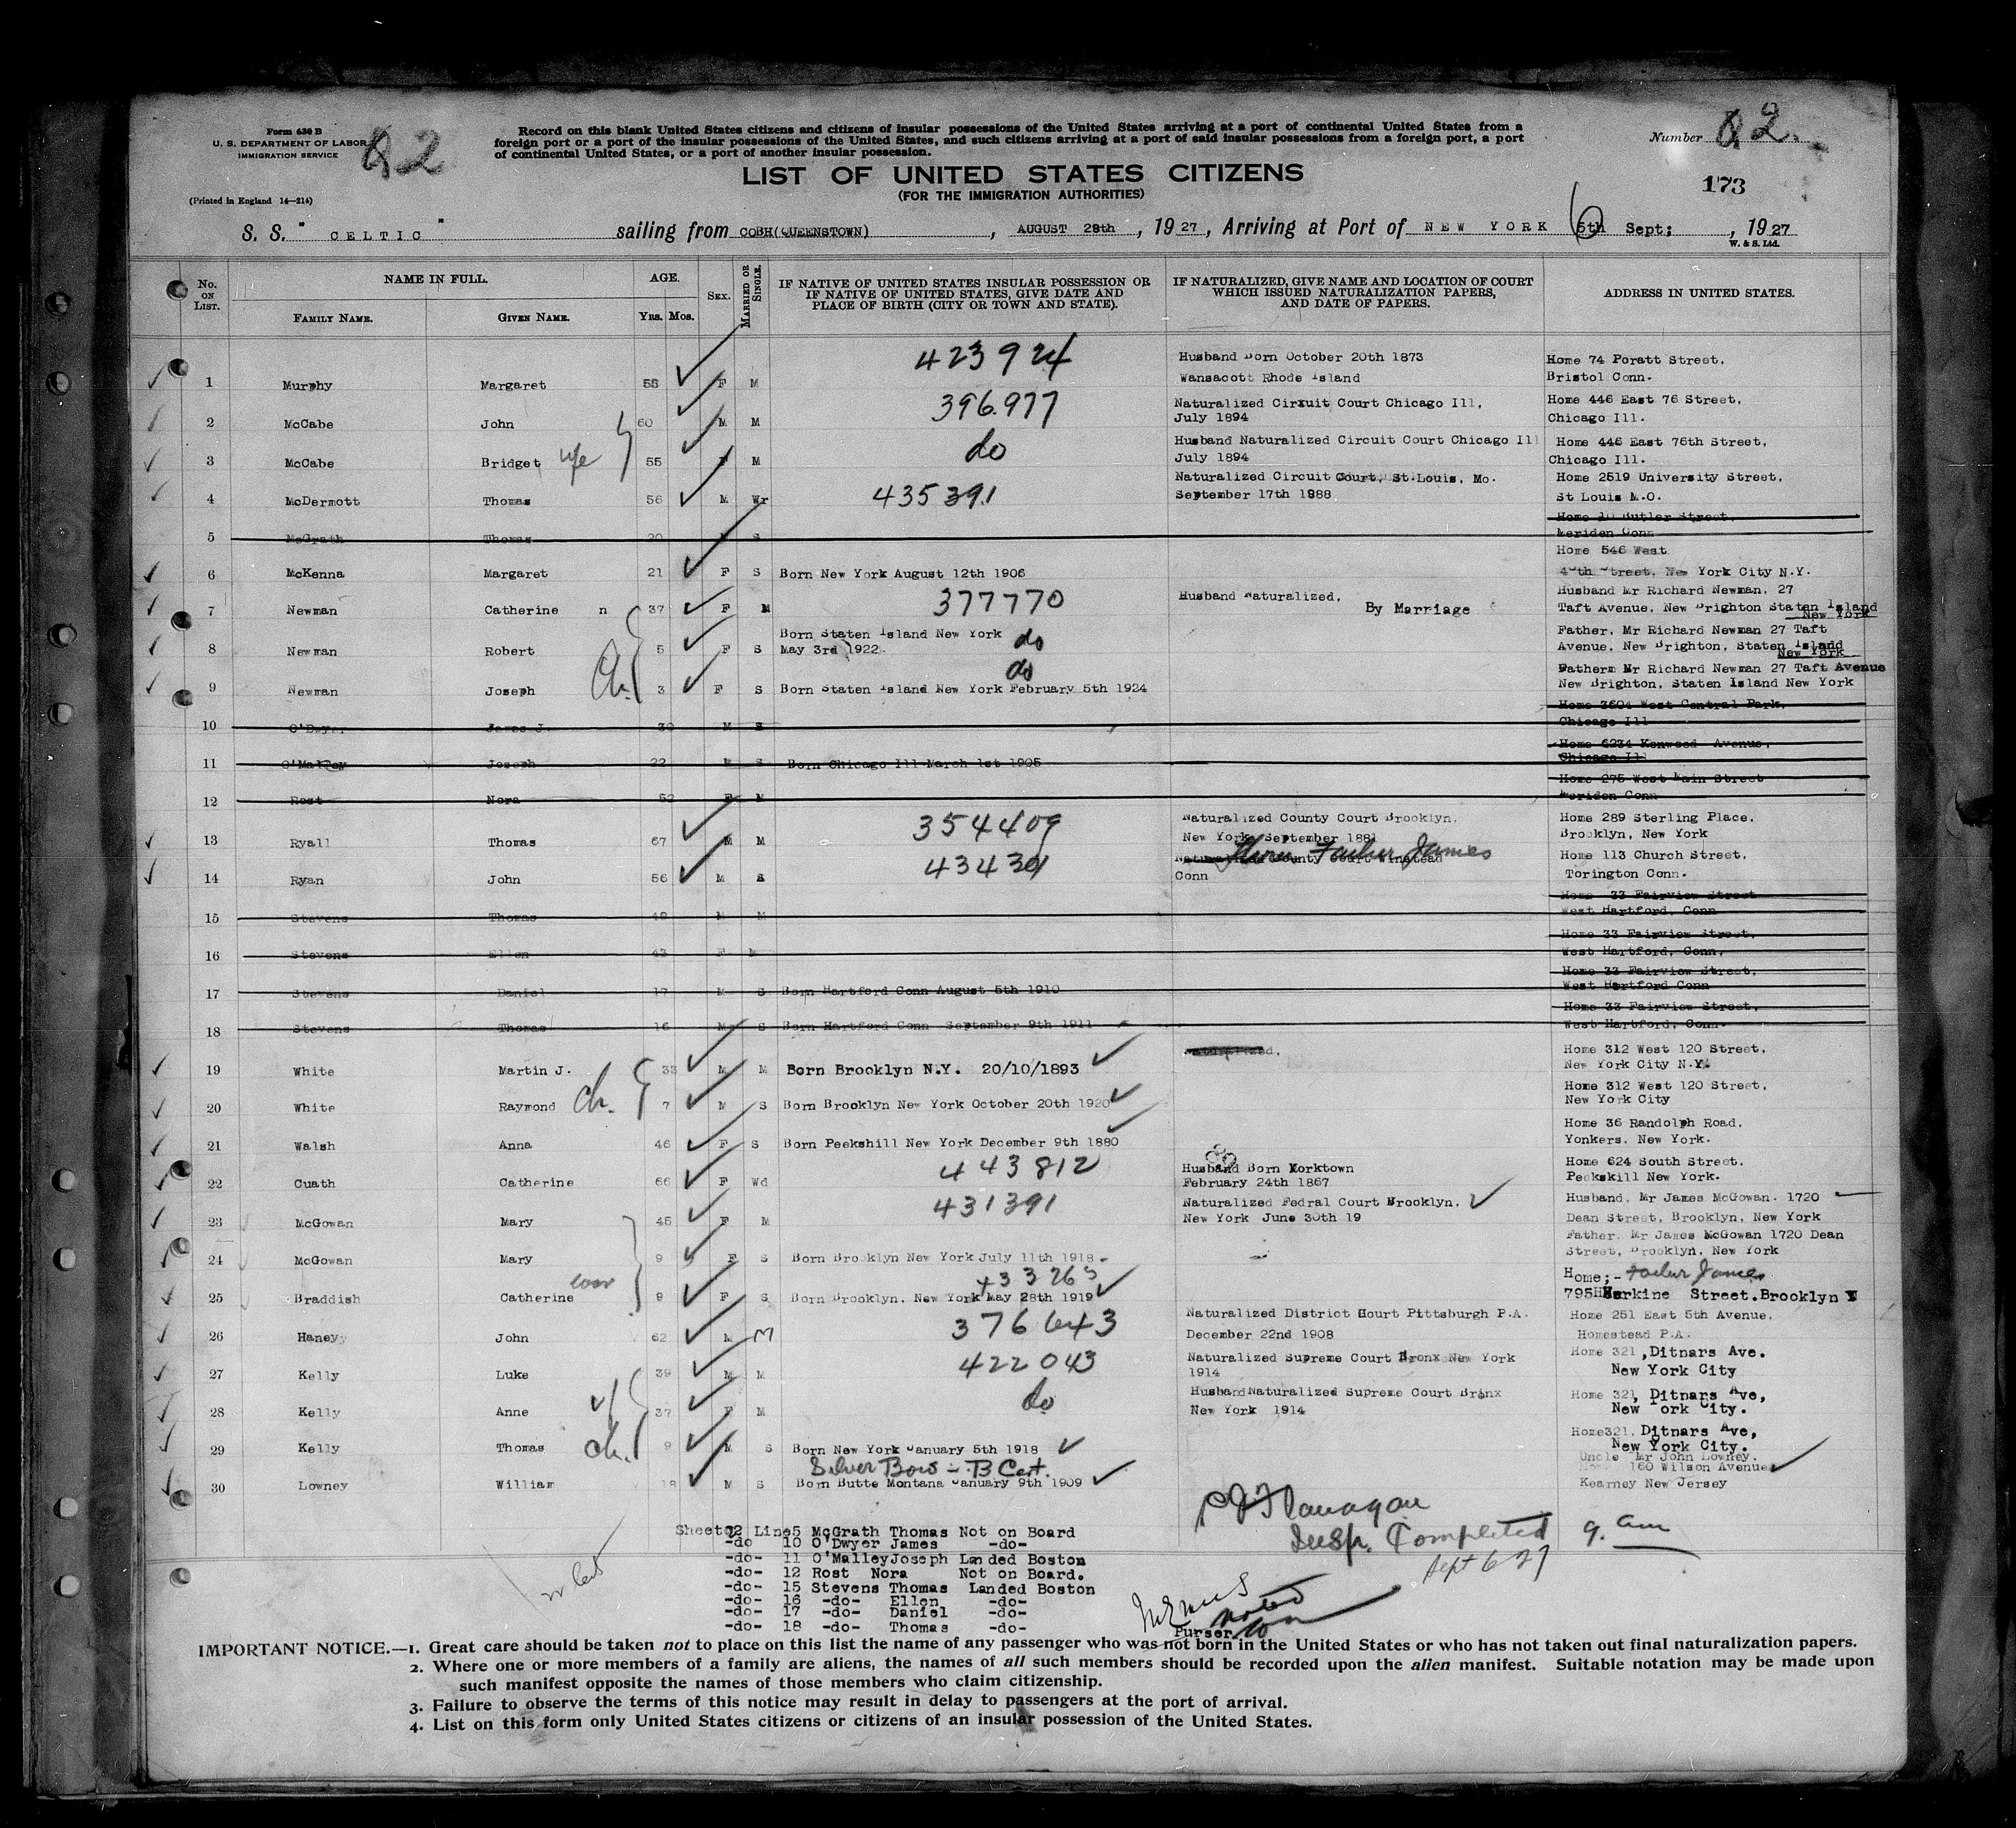 Form 630 B
U. S. DEPARTMENT OF LABOR
IMMIGRATION SERVICE
Record on this blank United States citizens and citizens of insular possessions of the United States arriving at a port of continental United States from a
foreign port or a port of the insular possessions of the United States, and such citizens arriving at a port of said insular possessions from a foreign port, a port
of continental United States, or a port of another insular possession.
Number 2.
LIST OF UNITED STATES CITIZENS
(FOR THE IMMIGRATION AUTHORITIES)
173
(Printed in England 14—214)
S. S. " CELTIC " sailing from COBH(QUEENSTOWN) , AUGUST 28th , 19 27 , Arriving at Port of NEW YORK 6 5th Sept; , 19 27
W. & S. Ltd.
No. ON LIST. NAME IN FULL. FAMILY NAME. GIVEN NAME. AGE. Yrs. Mos. SEX. MARRIED OR SINGLE. IF NATIVE OF UNITED STATES INSULAR POSSESSION OR IF NATIVE OF UNITED STATES, GIVE DATE AND PLACE OF BIRTH (CITY OR TOWN AND STATE). IF NATURALIZED, GIVE NAME AND LOCATION OF COURT WHICH ISSUED NATURALIZATION PAPERS, AND DATE OF PAPERS. ADDRESS IN UNITED STATES.
1 Murphy Margaret 55 F M 423924 Husband Born October 20th 1873 Wansacott Rhode Island Home 74 Poratt Street, Bristol Conn.
2 McCabe John 60 M M 396.977 Naturalized Cirxuit Court Chicago Ill, July 1894 Home 446 East 76 Street, Chicago Ill.
3 McCabe Bridget wife 55 F M do Husband Naturalized Circuit Court Chicago Ill July 1894 Home 446 East 76th Street, Chicago Ill.
4 McDermott Thomas 56 M Wr 435391 Naturalized Circuit Court, St.Louis, Mo. September 17th 1888 Home 2519 University Street, St Louis M.O.
5 McGrath Thomas 20 S Home 10 Butler Street, Meriden Conn
6 McKenna Margaret 21 F S Born New York August 12th 1906 Home 546 West Street, New York City N.Y.
7 Newman Catherine n 37 F M 377770 Husband Naturalized, By Marriage Husband Mr Richard Newman, 27 Taft Avenue, New Brighton Staten Island New York
8 Newman Robert 5 F S Born Staten Island New York May 3rd 1922. do Father, Mr Richard Newman 27 Taft Avenue, New Brighton, Staten Island New York
9 Newman Joseph ch. 3 F S do Born Staten Island New York February 5th 1924 Fatherm Mr Richard Newman 27 Taft Avenue New Brighton, Staten Island New York
10 O'Dwyer James J. 30 M S Home 3604 West Central Park, Chicago Ill
11 O'Malley Joseph 22 M S Born Chicago Ill March 1st 1905 Home 6234 Kenwood Avenue, Chicago Ill
12 Rost Nora 52 F M Home 275 West Main Street Meriden Conn
13 Ryall Thomas 67 M M 354409 Naturalized County Court Brooklyn, New York, September 1881 Home 289 Sterling Place, Brooklyn, New York
14 Ryan John 56 M S 434301 Naturalized County Court Winstead Conn Father James Home 113 Church Street, Torington Conn.
15 Stevens Thomas 49 M M Home 33 Fairview Street West Hartford, Conn
16 Stevens Ellen 43 F M Home 33 Fairview Street, West Hartford, Conn,
17 Stevens Daniel 17 M S Born Hartford Conn August 5th 1910 Home 33 Fairview Street, West Hartford Conn
18 Stevens Thomas 16 M S Born Hartford Conn September 9th 1911 Home 33 Fairview Street, West Hartford, Conn.
19 White Martin J. 33 M M Born Brooklyn N.Y. 20/10/1893 Naturalized, Home 312 West 120 Street, New York City N.Y.
20 White Raymond ch. 7 M S Born Brooklyn New York October 20th 1920 Home 312 West 120 Street, New York City
21 Walsh Anna 46 F S Born Peekshill New York December 9th 1880 Home 36 Randolph Road, Yonkers, New York.
22 Cuath Catherine 66 F Wd 443812 Husband Born Yorktown February 24th 1867 Home 624 South Street. Peekskill New York.
23 McGowan Mary 45 F M 431391 Naturalized Fedral Court Brooklyn, New York June 30th 19 Husband, Mr James McGowan. 1720 Dean Street, Brooklyn, New York
24 McGowan Mary 9 F S Born Brooklyn New York July 11th 1918 Father, Mr James McGowan 1720 Dean Street, Brooklyn, New York
25 Braddish Catherine 9 F S 433265 Born Brooklyn, New York May 28th 1919 Home;- Father James 795 Herkine Street.Brooklyn
26 Haney John 62 M M 376643 Naturalized District Hourt Pittsburgh P.A. December 22nd 1908 Home 251 East 5th Avenue, Homestead P.A.
27 Kelly Luke 39 M M 422043 Naturalized Supreme Court Bronx New York 1914 Home 321, Ditnars Ave. New York City
28 Kelly Anne 37 F M do Husband Naturalized Supreme Court Brinx New York 1914 Home 321, Ditnars Ave, New York City.
29 Kelly Thomas ch. 9 M S Born New York January 5th 1918 Home321, Ditnars Ave, New York City.
30 Lowney William 18 M S Silver Bow - B Cert. Born Butte Montana January 9th 1909 Uncle Mr John Lowney, 160 Wilson Avenue Kearney New Jersey
P J Flanagan
Insp. Completed 9. am
Sept 6-27
Sheet 2 Line5 McGrath Thomas Not on Board
-do 10 O'Dwyer James -do-
-do- 11 O'MalleyJoseph Landed Boston
-do- 12 Rost Nora Not on Board.
-do- 15 Stevens Thomas Landed Boston
-do- 16 -do- Ellen -do-
-do- 17 -do- Daniel -do-
-do- 18 -do- Thomas -do-
noted
Purser.
IMPORTANT NOTICE.—1. Great care should be taken not to place on this list the name of any passenger who was not born in the United States or who has not taken out final naturalization papers.
2. Where one or more members of a family are aliens, the names of all such members should be recorded upon the alien manifest. Suitable notation may be made upon
such manifest opposite the names of those members who claim citizenship.
3. Failure to observe the terms of this notice may result in delay to passengers at the port of arrival.
4. List on this form only United States citizens or citizens of an insular possession of the United States.